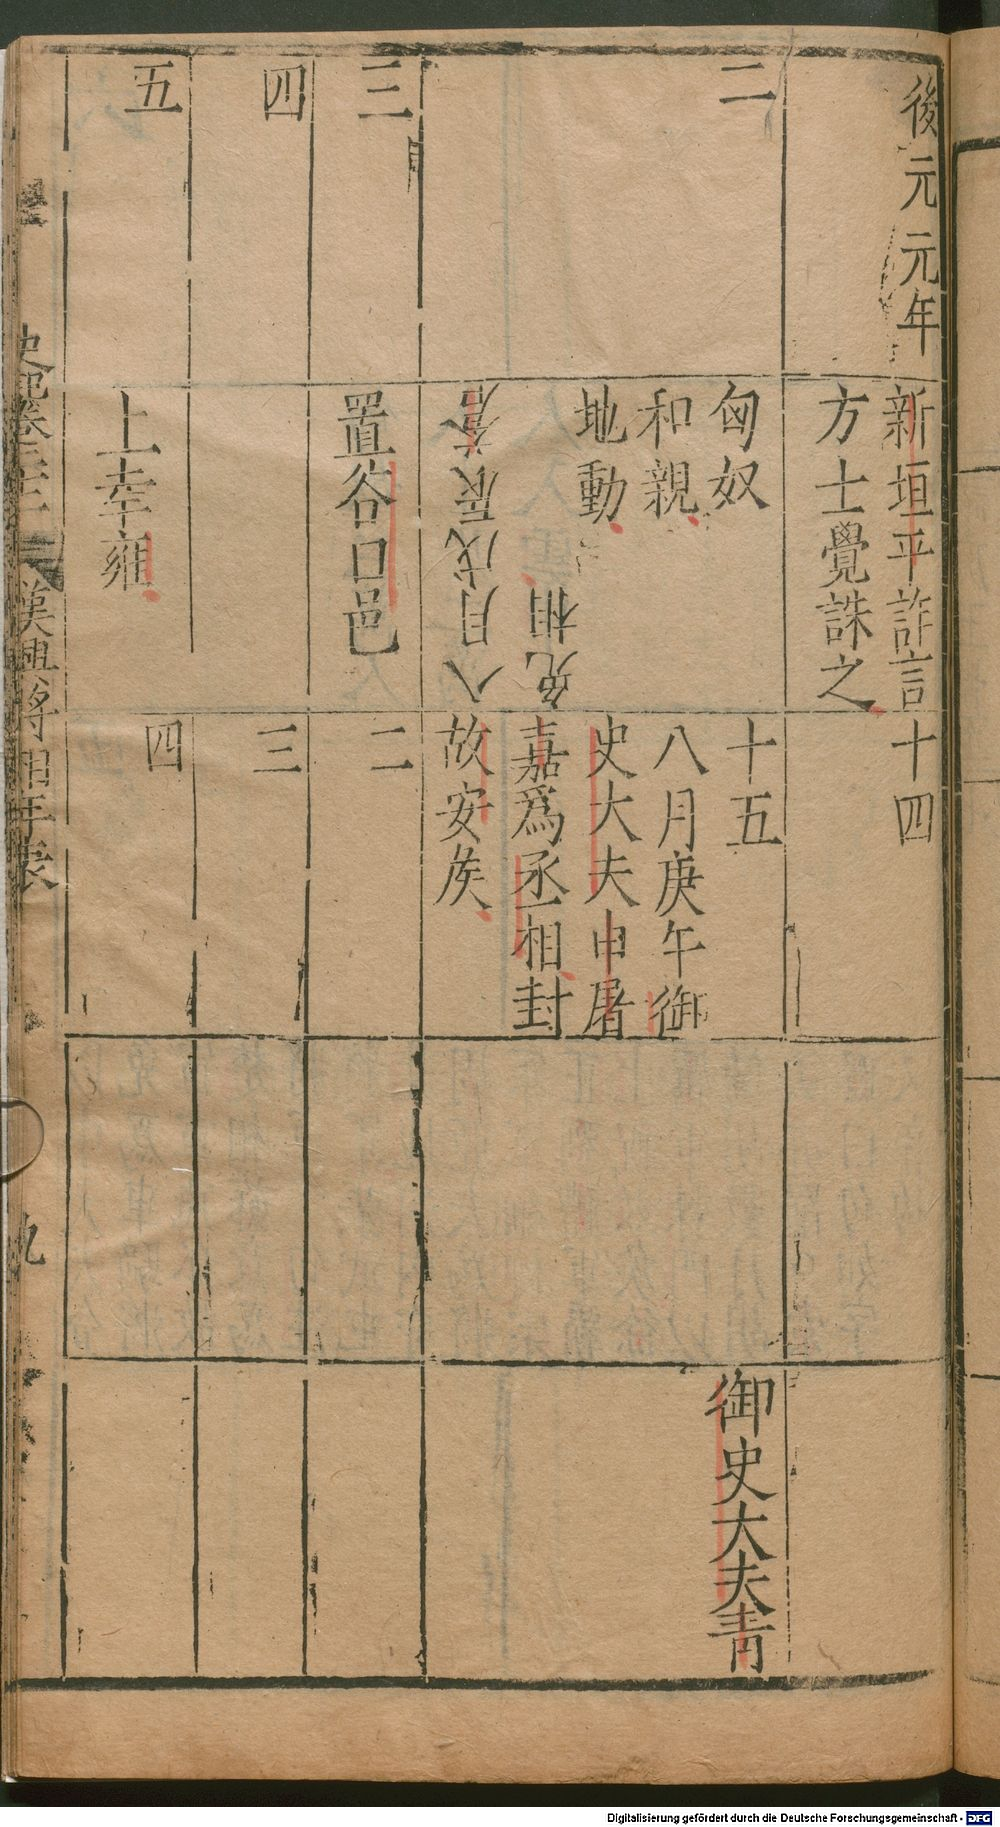 後元元年
新垣平詐言
方士覺誅之
十四
二
匈奴
和親
地動
八月戊辰蒼
免相
十五
八月庚午御
史大夫申屠
嘉爲丞相封
故安侯
御史大夫青
三
置谷口邑
二
四
三
五
上幸雍
四
漢興將相年表
九
Digitalisierung gefördert durch die Deutsche Forschungsgemeinschaft - DFG